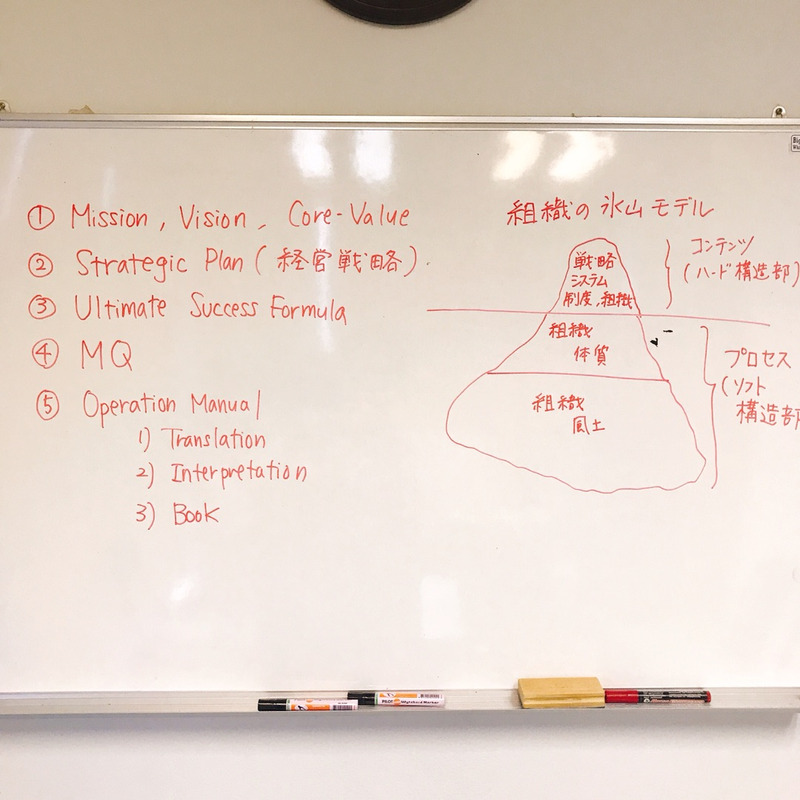 ① Mission, Vision, Core-Value
② Strategic Plan (経営戦略)
③ Ultimate Success Formula
④ MQ
⑤ Operation Manual
1) Translation
2) Interpretation
3) Book
組織の氷山モデル
戦略
システム
制度,組織
組織
体質
組織
風土
コンテンツ
(ハード構造部)
プロセス
(ソフト
構造部
PILOT